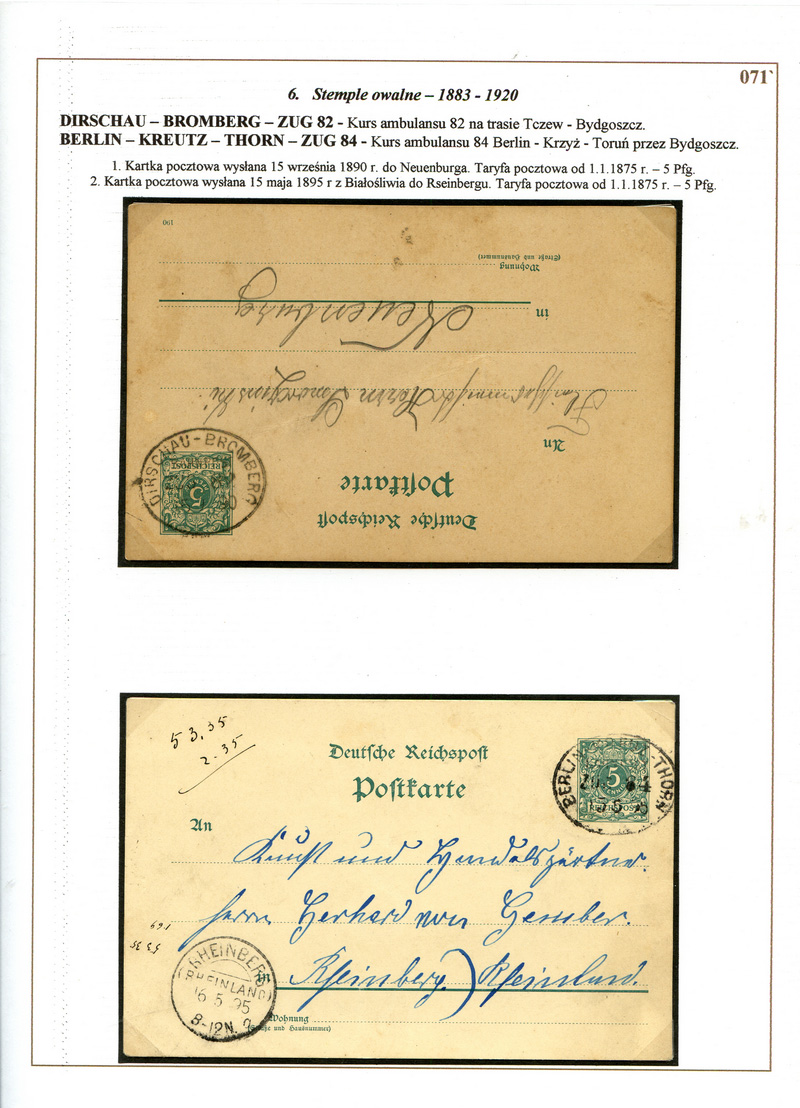 071`
6. Stemple owalne – 1883 - 1920
DIRSCHAU – BROMBERG – ZUG 82 - Kurs ambulansu 82 na trasie Tczew - Bydgoszcz.
BERLIN – KREUTZ – THORN – ZUG 84 - Kurs ambulansu 84 Berlin - Krzyż - Toruń przez Bydgoszcz.
1. Kartka pocztowa wysłana 15 września 1890 r. do Neuenburga. Taryfa pocztowa od 1.1.1875 r. – 5 Pfg.
2. Kartka pocztowa wysłana 15 maja 1895 r z Białośliwia do Rseinbergu. Taryfa pocztowa od 1.1.1875 r. – 5 Pfg.
Deutsche Reichspost
Postkarte
DIRSCHAU - BROMBERG
REICHSPOST
5
An
Herrn
in Neuenburg
Wohnung
(Straße und Hausnummer)
190
53.35
2.35
Deutsche Reichspost
Postkarte
BERLIN -THORN
5
84
15 5 95
An
Kunst und Handelsgärtner
Herrn Gerhard von
in Rheinberg) Rheinland.
169
53 35
RHEINBERG
(RHEINLAND)
16 5 95
8-12N.
Wohnung
(Straße und Hausnummer)